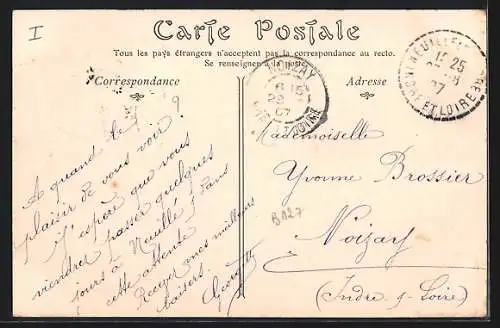 I
Carte Postale
Tous les pays étrangers n'acceptent pas la correspondance au recto.
Se renseigner à la poste.
Correspondance
Adresse
A quand le
plaisir de vous voir ?
J'espère que vous
viendrez passer quelques
jours à Neuillé ; dans
cette attente
Recevez mes meilleurs
baisers.
Georgette
Mademoiselle
Yvonne Brossier
Noizay
(Indre & Loire)
B127
NOIZAY
6 15
22
07
INDRE
25
07
ET LOIRE